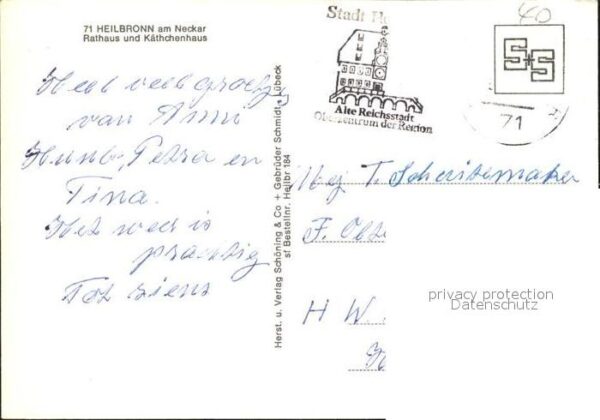 71 HEILBRONN am Neckar
Rathaus und Käthchenhaus
Heel veel
van
Petra en
Tina.
Het weer is
prachtig
Tot ziens
Herst. u. Verlag Schöning & Co + Gebrüder Schmidt, Lübeck
sf Bestellnr. Heilbr 184
Stadt He
Alte Reichsstadt
Oberzentrum der Region
40
S+S
71
T. Scheitemaker
F.
H W
privacy protection
Datenschutz